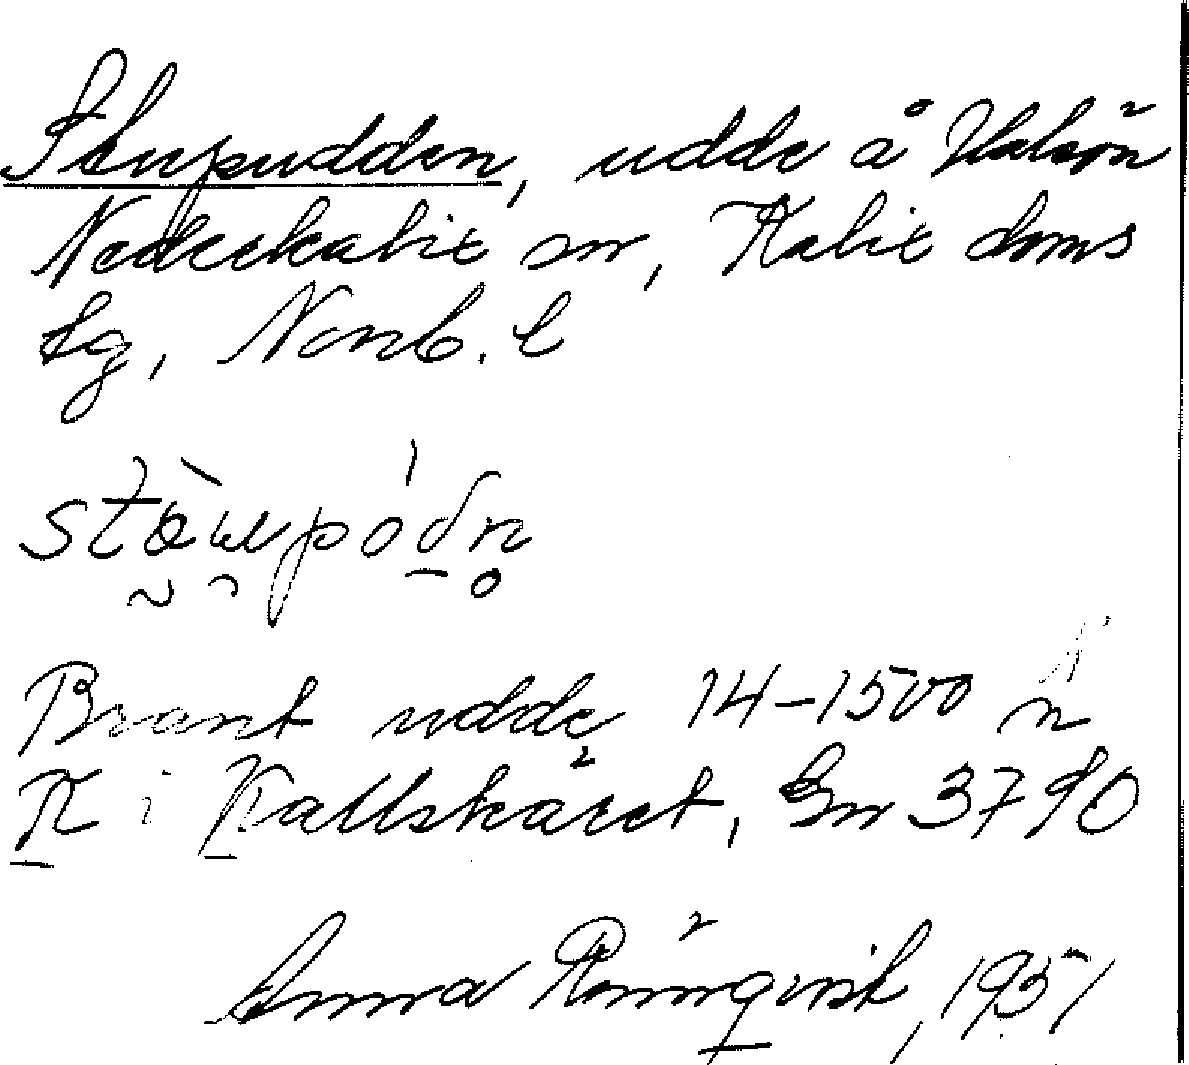 Stupudden, udde å Halsön
Nederkalix sn, Kalix doms
lg, Norrb. l
Brant udde 14-1500 m
K i Kallskäret, Gn 3790
Anna Rönnqvist, 1951